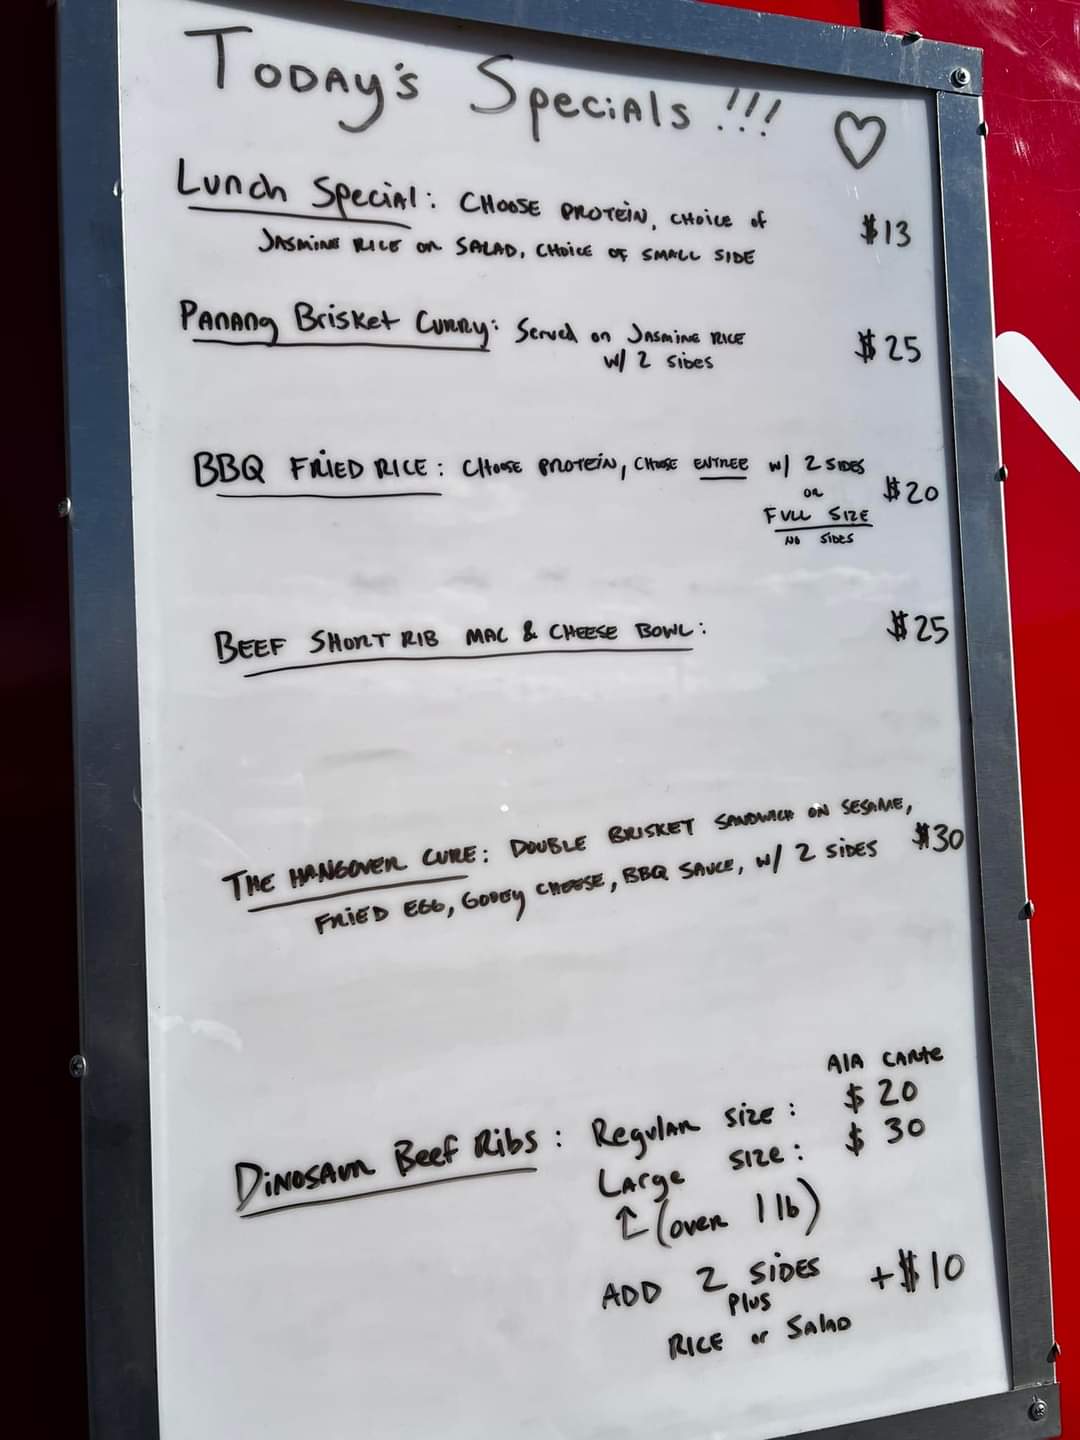 Today's Specials!!!
Lunch Special: Choose Protein, choice of $13
Jasmine Rice or Salad, choice of small side
Panang Brisket Curry: Served on Jasmine Rice $25
w/ 2 sides
BBQ Fried Rice: Choose Protein, Choose Entree w/ 2 sides $20
or
Full Size
No sides
Beef Short Rib Mac & Cheese Bowl: $25
The Hangover Cure: Double Brisket Sandwich on Sesame, $30
Fried Egg, Gooey Cheese, BBQ Sauce, w/ 2 sides
Ala Carte
Dinosaur Beef Ribs: Regular size: $20
Large size: $30
(over 1 lb)
Add 2 sides +$10
plus
Rice or Salad